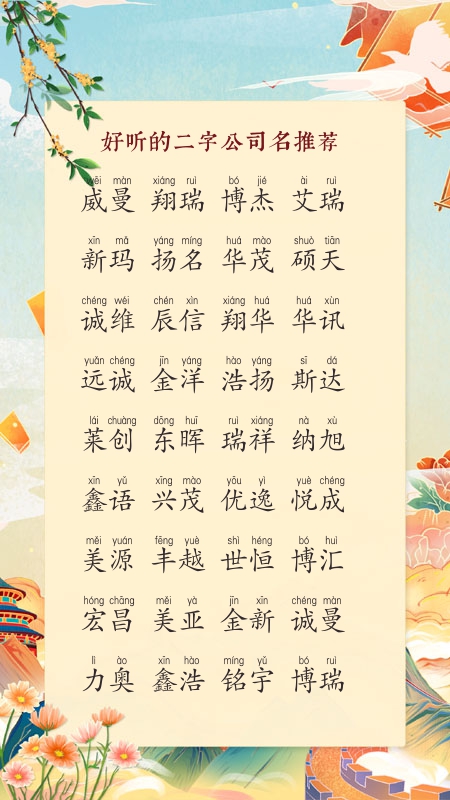 好听的二字公司名推荐
wēi màn xiáng ruì bó jié ài ruì
威曼 翔瑞 博杰 艾瑞
xīn mǎ yáng míng huá mào shuò tiān
新玛 扬名 华茂 硕天
chéng wéi chén xìn xiáng huá huá xùn
诚维 辰信 翔华 华讯
yuǎn chéng jīn yáng hào yáng sī dá
远诚 金洋 浩扬 斯达
lái chuàng dōng huī ruì xiáng nà xù
莱创 东晖 瑞祥 纳旭
xīn yǔ xīng mào yōu yì yuè chéng
鑫语 兴茂 优逸 悦成
měi yuán fēng yuè shì héng bó huì
美源 丰越 世恒 博汇
hóng chāng měi yà jīn xīn chéng màn
宏昌 美亚 金新 诚曼
lì ào xīn hào míng yǔ bó ruì
力奥 鑫浩 铭宇 博瑞